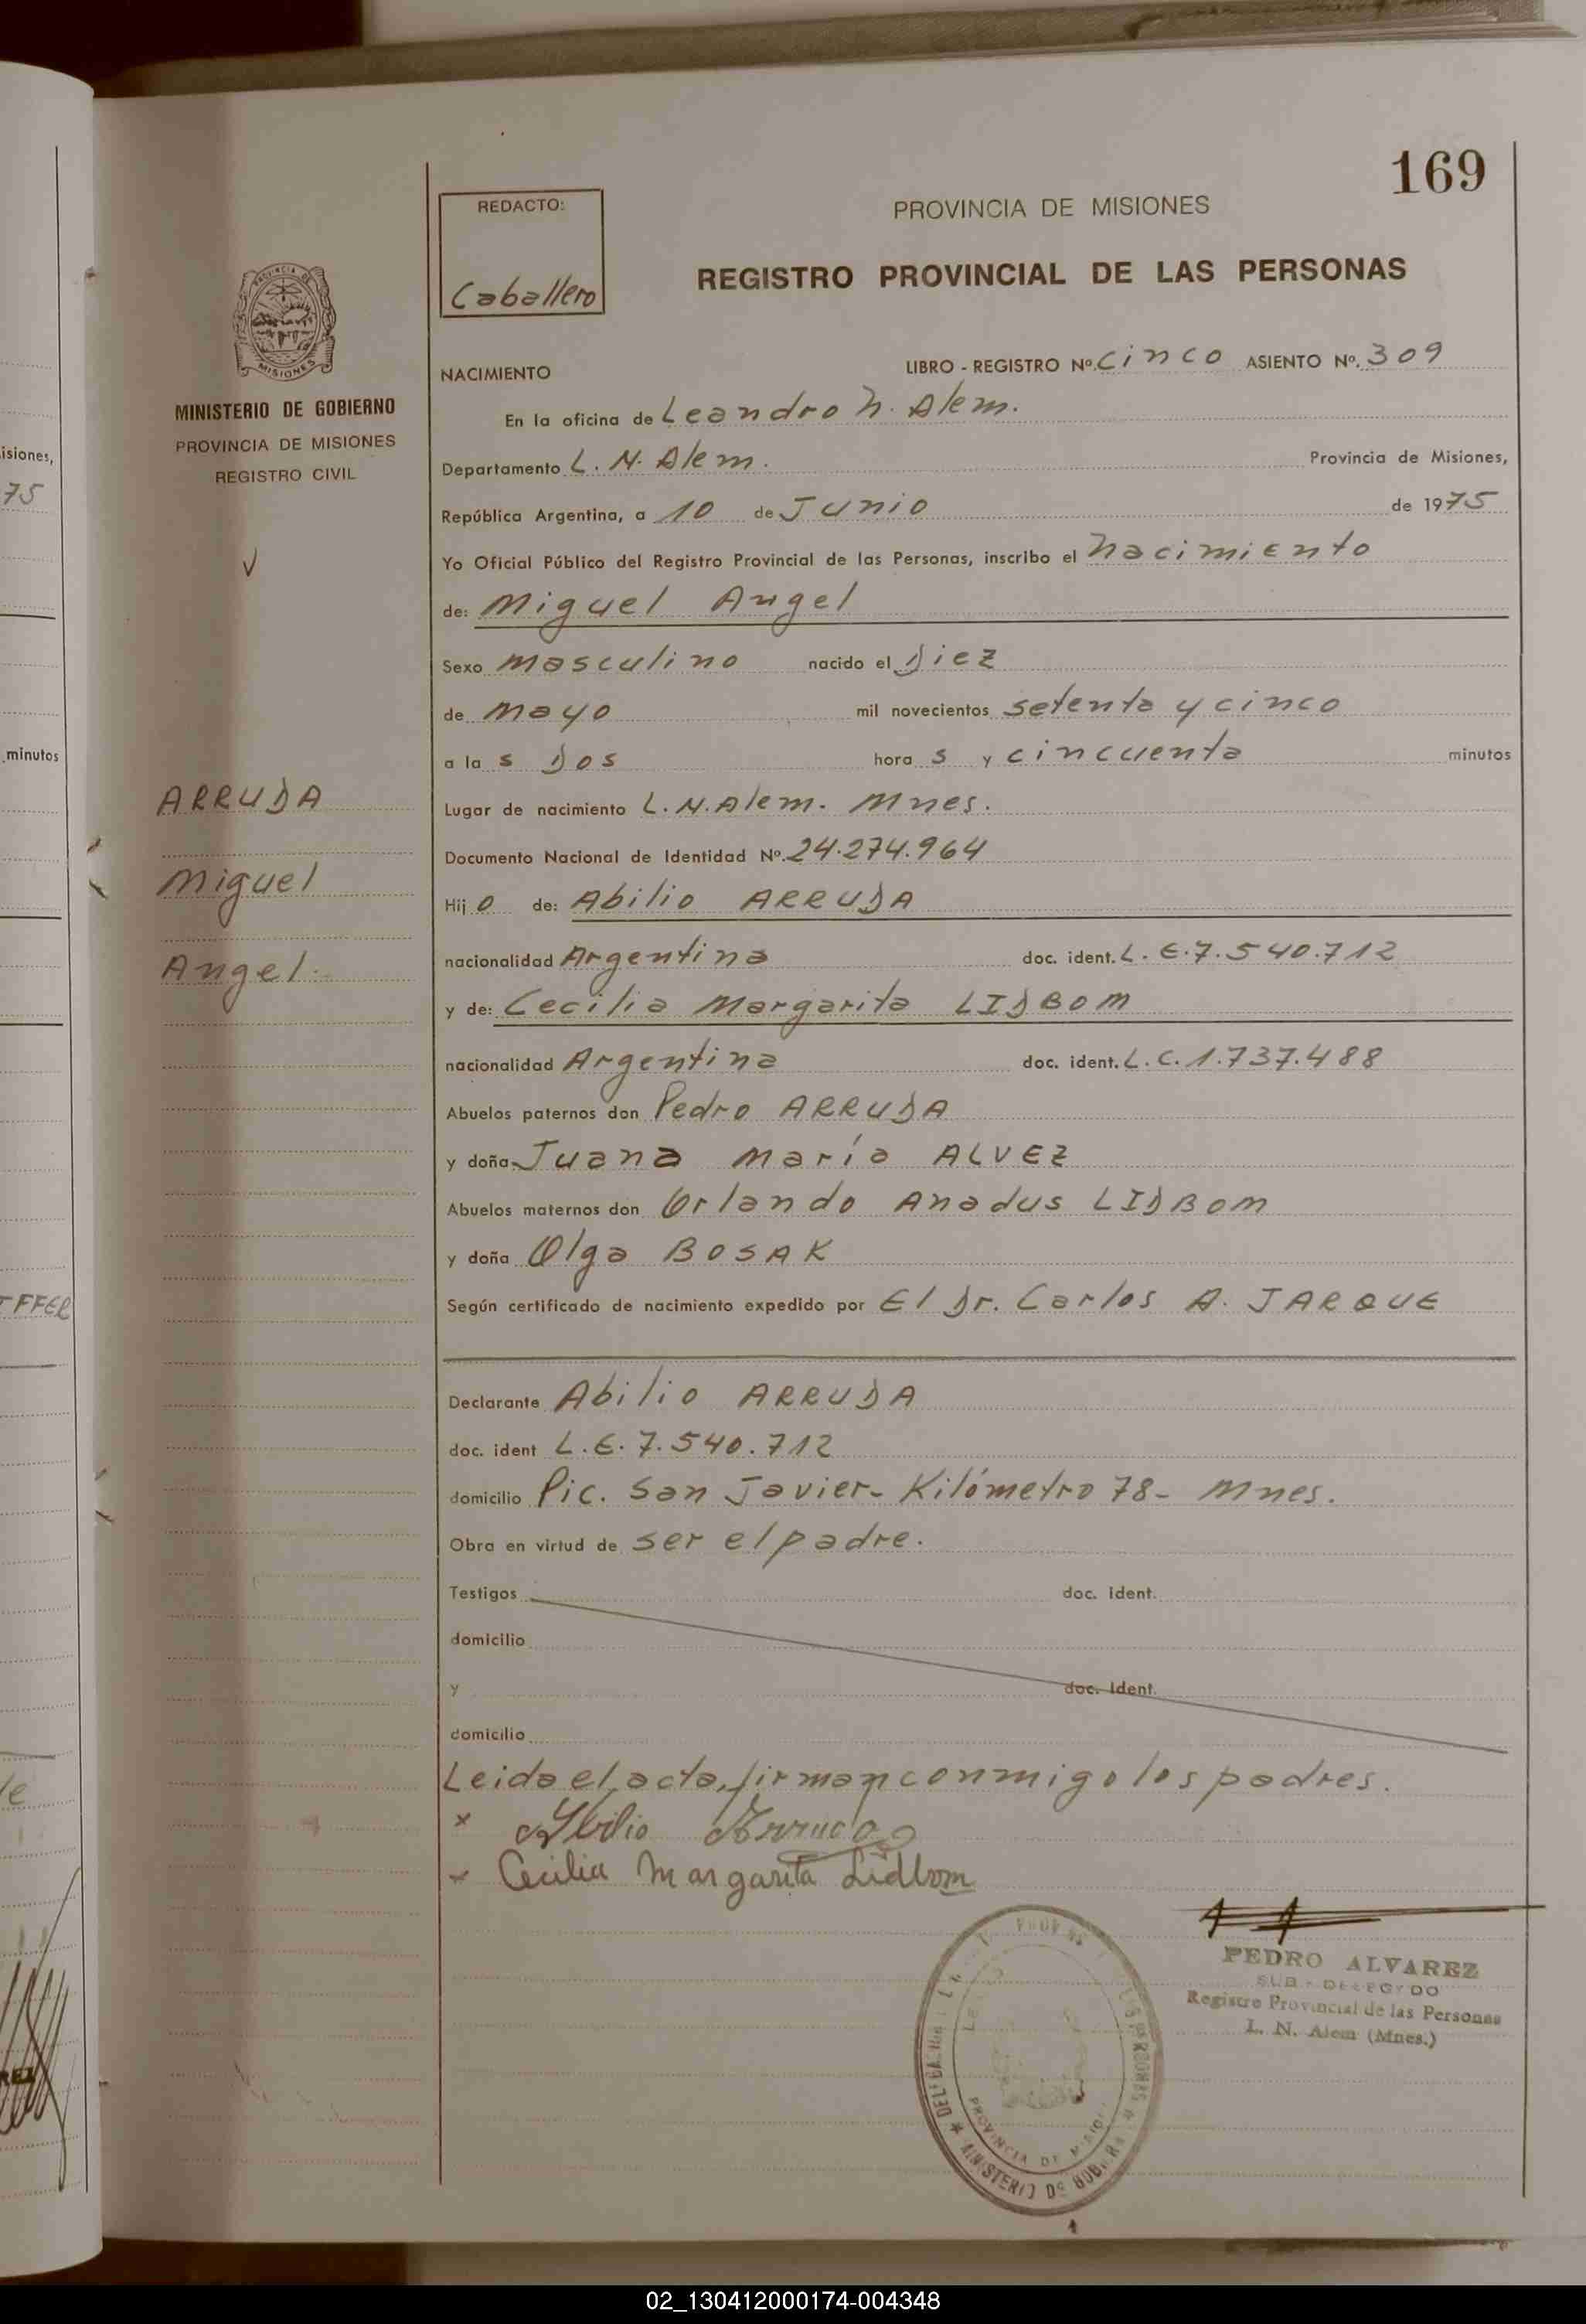 169
REDACTO:
Caballero
PROVINCIA DE MISIONES
REGISTRO PROVINCIAL DE LAS PERSONAS
PROVINCIA DE
MISIONES
MINISTERIO DE GOBIERNO
PROVINCIA DE MISIONES
REGISTRO CIVIL
ARRUDA
Miguel
Angel
NACIMIENTO LIBRO - REGISTRO Nº. Cinco ASIENTO Nº. 309
En la oficina de Leandro N. Alem.
Departamento L. N. Alem. Provincia de Misiones,
República Argentina, a 10 de Junio de 1975
Yo Oficial Público del Registro Provincial de las Personas, inscribo el nacimiento
de: Miguel Angel
Sexo masculino nacido el Diez
de mayo mil novecientos setenta y cinco
a la s Dos hora s y cincuenta minutos
Lugar de nacimiento L. N. Alem. Mnes.
Documento Nacional de Identidad Nº. 24.274.964
Hij o de: Abilio ARRUDA
nacionalidad Argentina doc. ident. L. E. 7.540.712
y de: Cecilia Margarita LIDBOM
nacionalidad Argentina doc. ident. L. C. 1.737.488
Abuelos paternos don Pedro ARRUDA
y doña Juana María ALVEZ
Abuelos maternos don Orlando Anadus LIDBOM
y doña Olga BOSAK
Según certificado de nacimiento expedido por El Dr. Carlos A. JARQUE
Declarante Abilio ARRUDA
doc. ident L. E. 7.540.712
domicilio Pic. San Javier- Kilómetro 78- Mnes.
Obra en virtud de ser el padre.
Testigos doc. ident.
domicilio
y doc. ident.
domicilio
Leida el acta, firman conmigo los padres.
x Abilio Arruda
x Cecilia Margarita Lidbom
PEDRO ALVAREZ
SUB - DELEGADO
Registro Provincial de las Personas
L. N. Alem (Mnes.)
PROVINCIA DE
MINISTERIO DE
isiones,
75
minutos
FFER
le
REZ
02_130412000174-004348